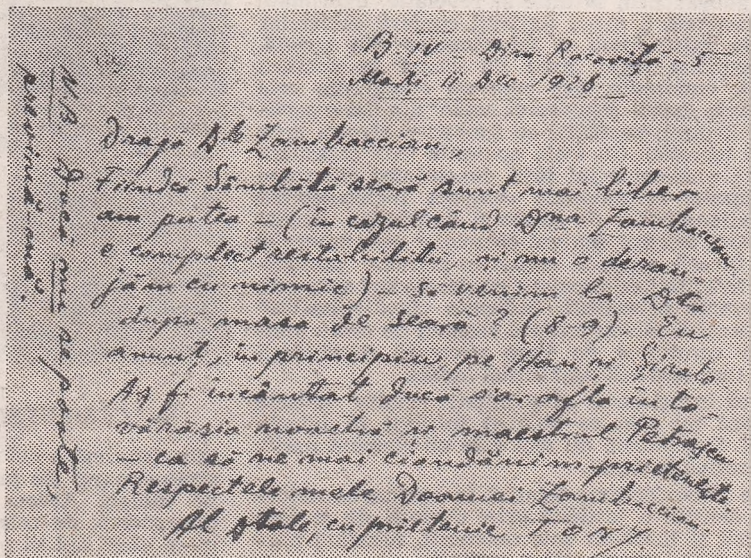 B. IV - Dim. Racoviță - 5
Marți 11 Dec 1928.
Dragă Dle Zambaccian,
Fiindcă Sâmbătă seară sunt mai liber
am putea - (în cazul când Dna Zambaccian
e complect restabilită, și nu o deran-
jăm cu nimic) - să venim la Dta
după masa de seară? (8-9). Eu
anunț, în principiu, pe Han și Șirato
Aș fi încântat dacă s'ar afla în to-
vărășia noastră și maestrul Petrașcu
- ca să ne mai ciondănim prietenește.
Respectele mele Doamnei Zambaccian.
Al Dtale, cu prietenie TONY
N.B. Dacă nu se poate,
prevină-mă.